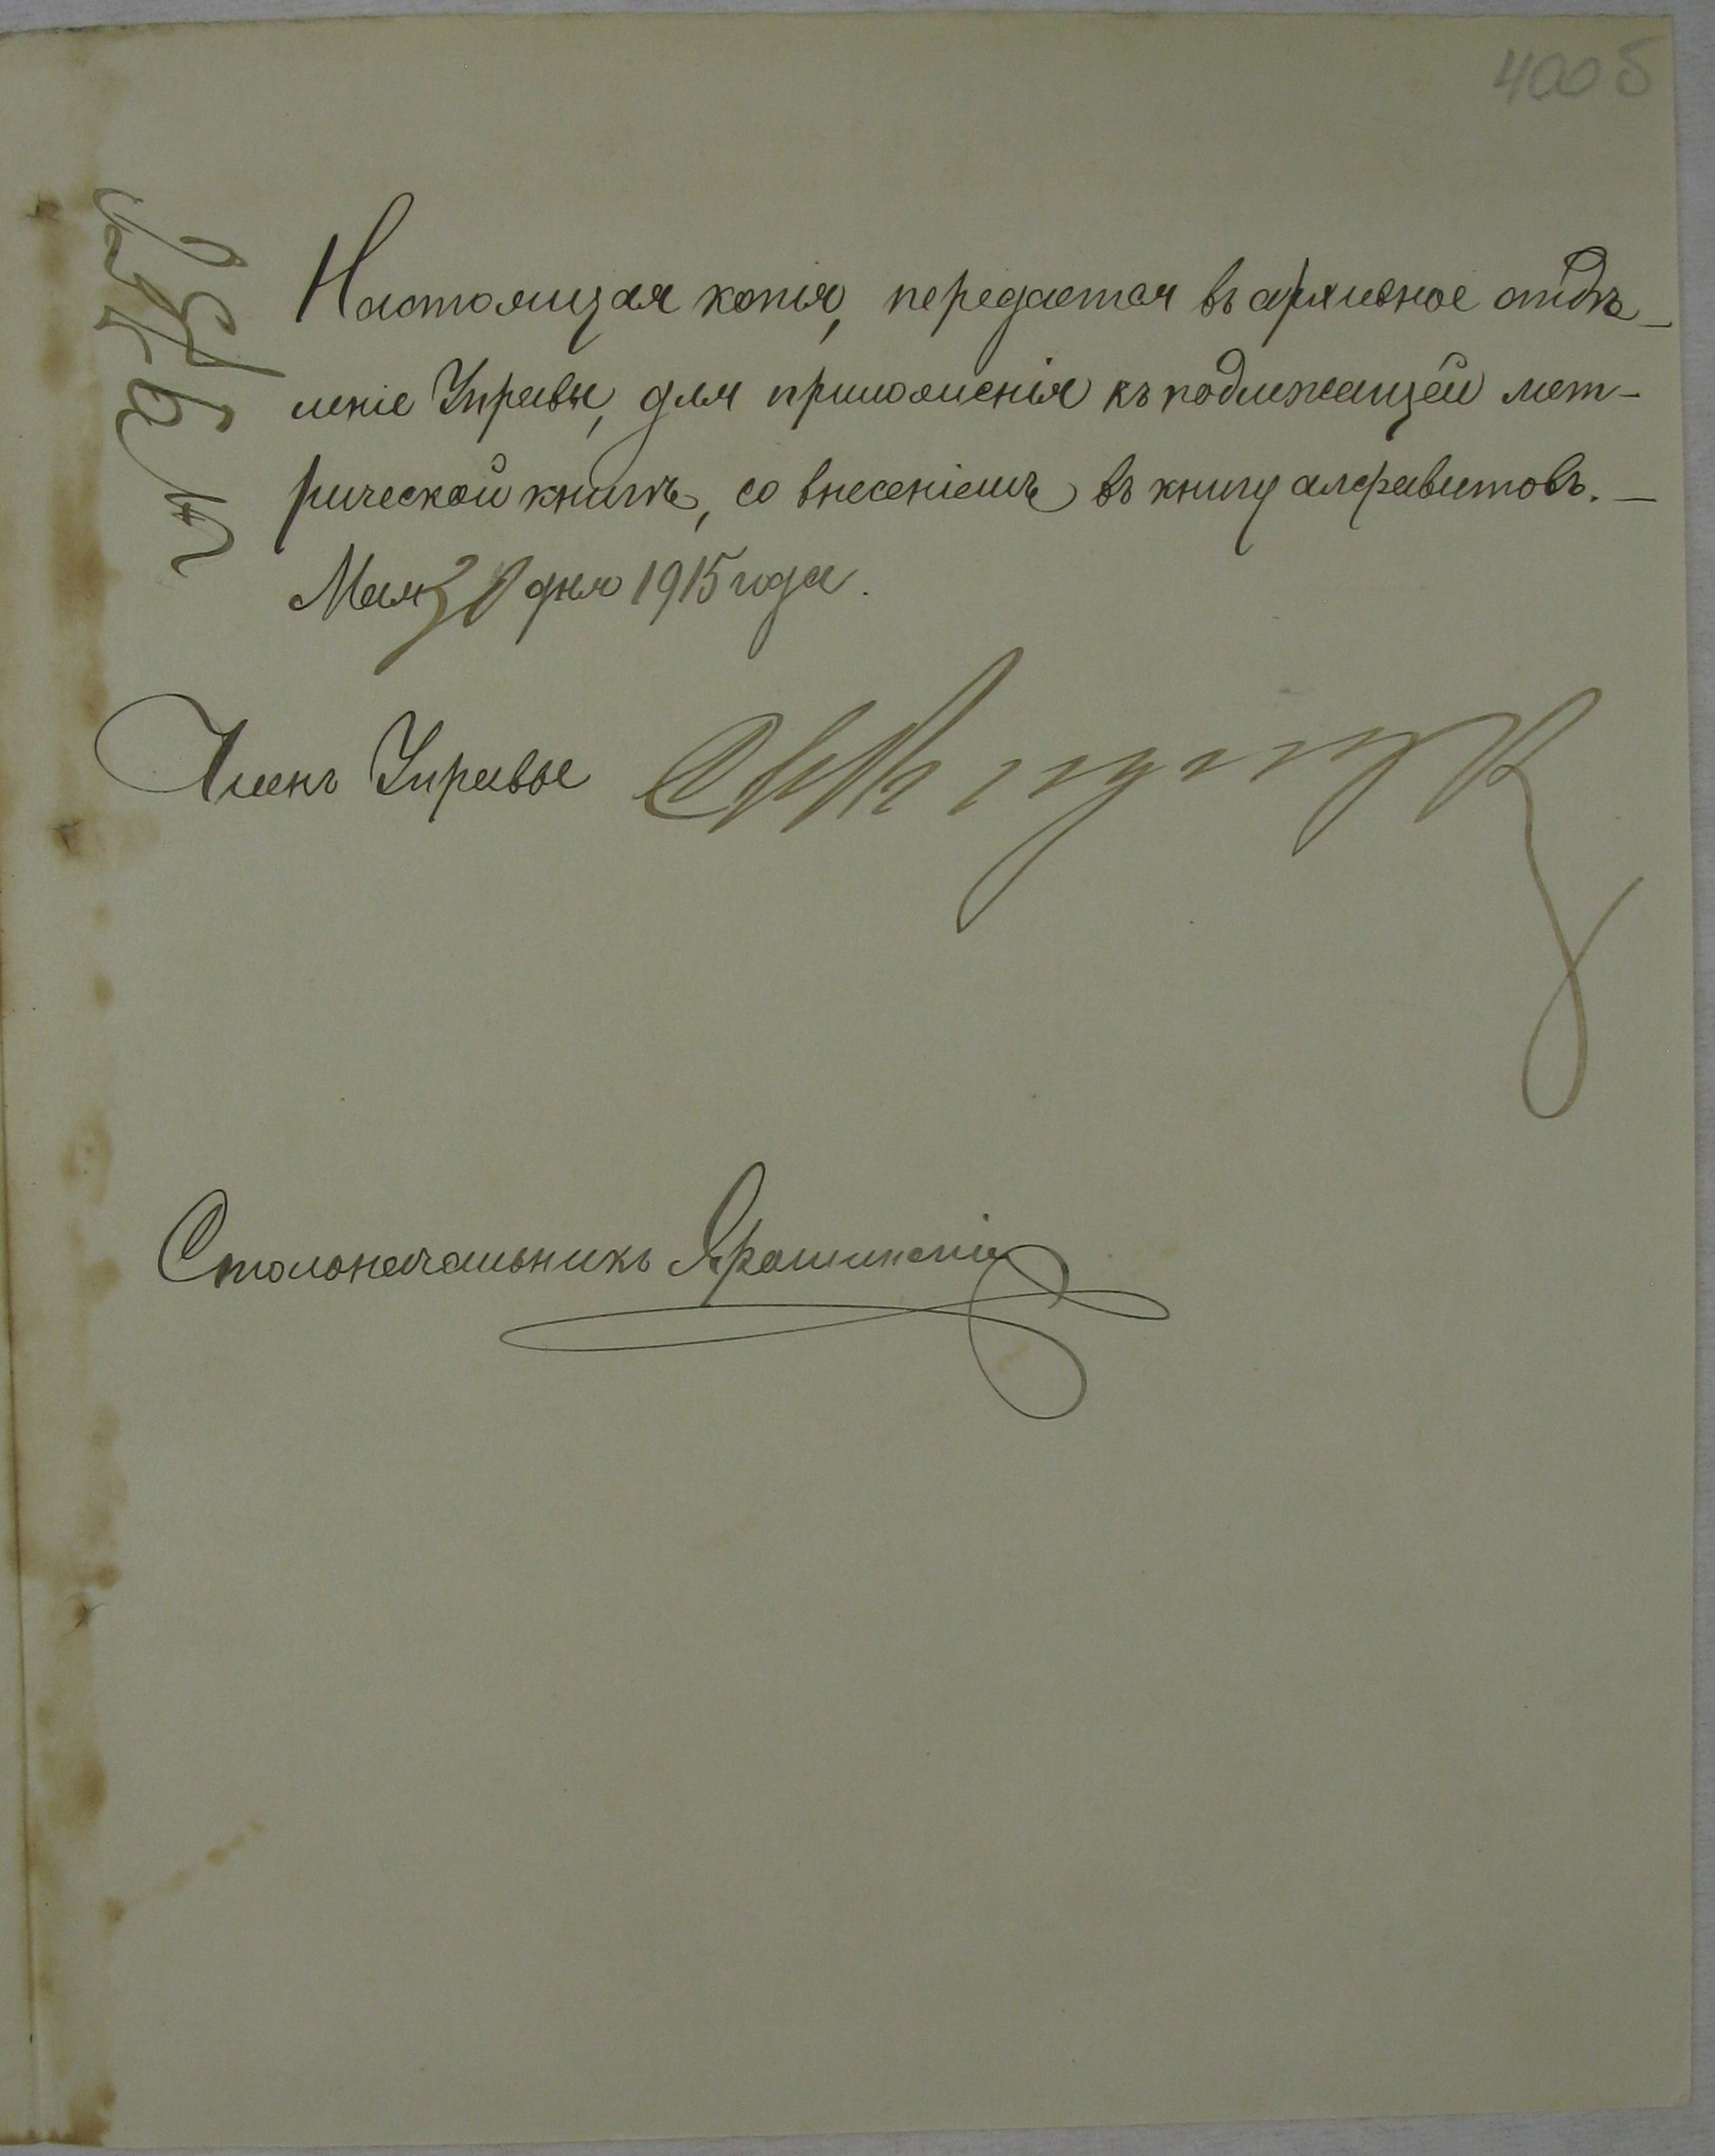 400б
Настоящая копія, передается въ архивное отдѣ-
леніе Управы, для приложенія къ подлежащей мет-
рической книгѣ, со внесеніемъ въ книгу алфавитовъ. —
Мая 30 дня 1915 года.
Членъ Управы
Столоначальникъ Ярошинскій